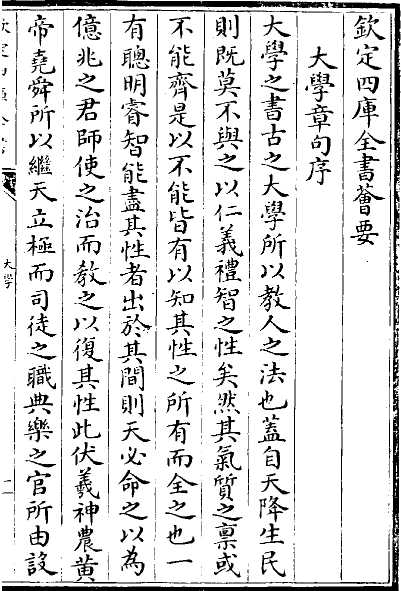 欽定四庫全書薈要
大學章句序
大學之書古之大學所以教人之法也蓋自天降生民
則既莫不與之以仁義禮智之性矣然其氣質之稟或
不能齊是以不能皆有以知其性之所有而全之也一
有聰明睿智能盡其性者出於其間則天必命之以為
億兆之君師使之治而教之以復其性此伏羲神農黄
帝堯舜所以繼天立極而司徒之職典樂之官所由設
大學